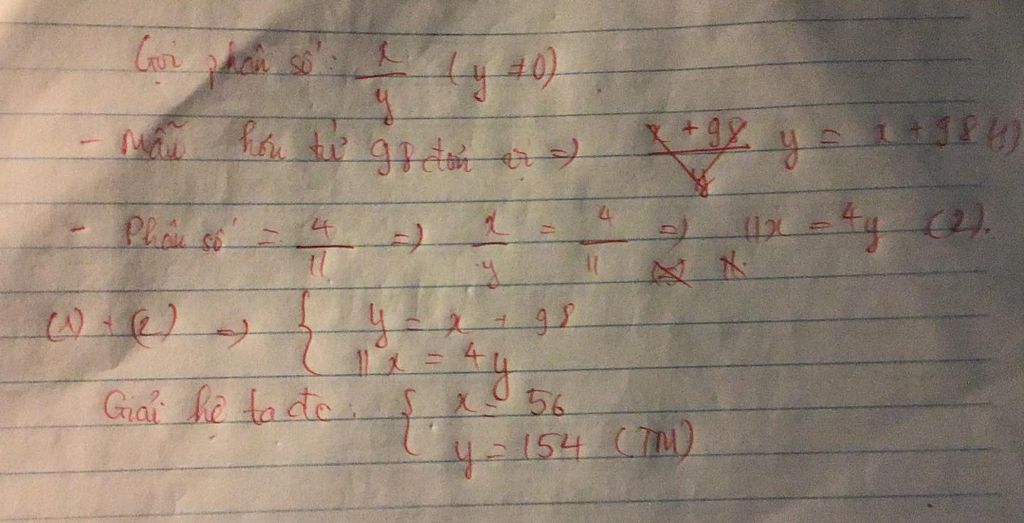 Gọi phân số: x/y (y ≠ 0)
- Mẫu hơn tử 98 đơn vị => y = x + 98 (1)
- Phân số = 4/11 => x/y = 4/11 => 11x = 4y (2).
(1) + (2) => { y = x + 98
11x = 4y
Giải hệ ta đc: { x = 56
y = 154 (TM)